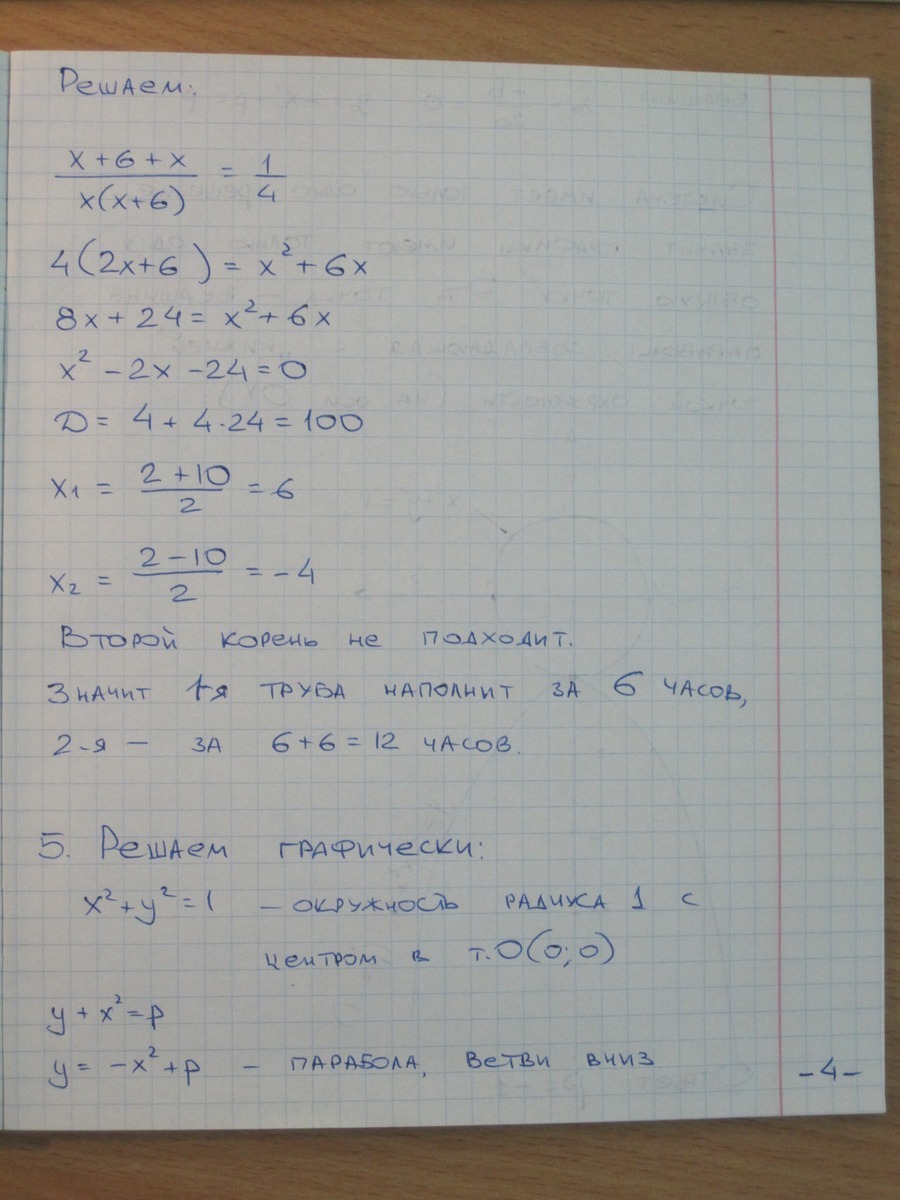 Решаем:
x + 6 + x / x(x+6) = 1/4
4(2x+6) = x² + 6x
8x + 24 = x² + 6x
x² - 2x - 24 = 0
D = 4 + 4·24 = 100
x₁ = 2 + 10 / 2 = 6
x₂ = 2 - 10 / 2 = -4
Второй корень не подходит.
Значит 1-я труба наполнит за 6 часов,
2-я — за 6+6=12 часов.
5. Решаем графически:
x² + y² = 1 – окружность радиуса 1 с
центром в т.O(0;0)
y + x² = p
y = -x² + p – парабола, ветви вниз
-4-